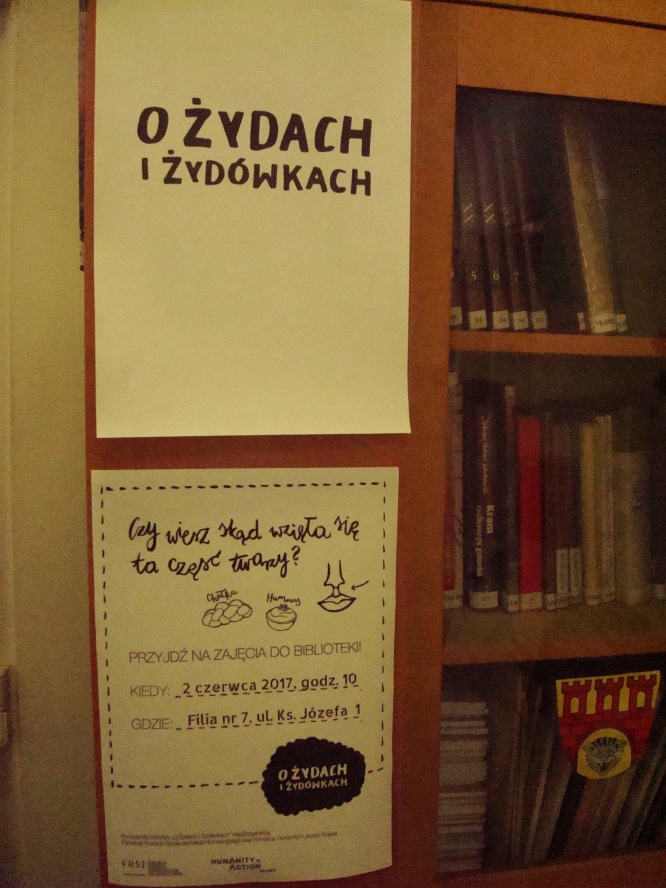 O ŻYDACH
I ŻYDÓWKACH
Czy wiesz skąd wzięła się
ta część twarzy?
Chałka
Hummus
PRZYJDŹ NA ZAJĘCIA DO BIBLIOTEKI!
KIEDY: 2 czerwca 2017, godz. 10
GDZIE: Filia nr 7, ul. Ks. Józefa 1
O ŻYDACH
I ŻYDÓWKACH
FRSI
HUMANITY IN
ACTION
XX
XX
5
6
7
Kram